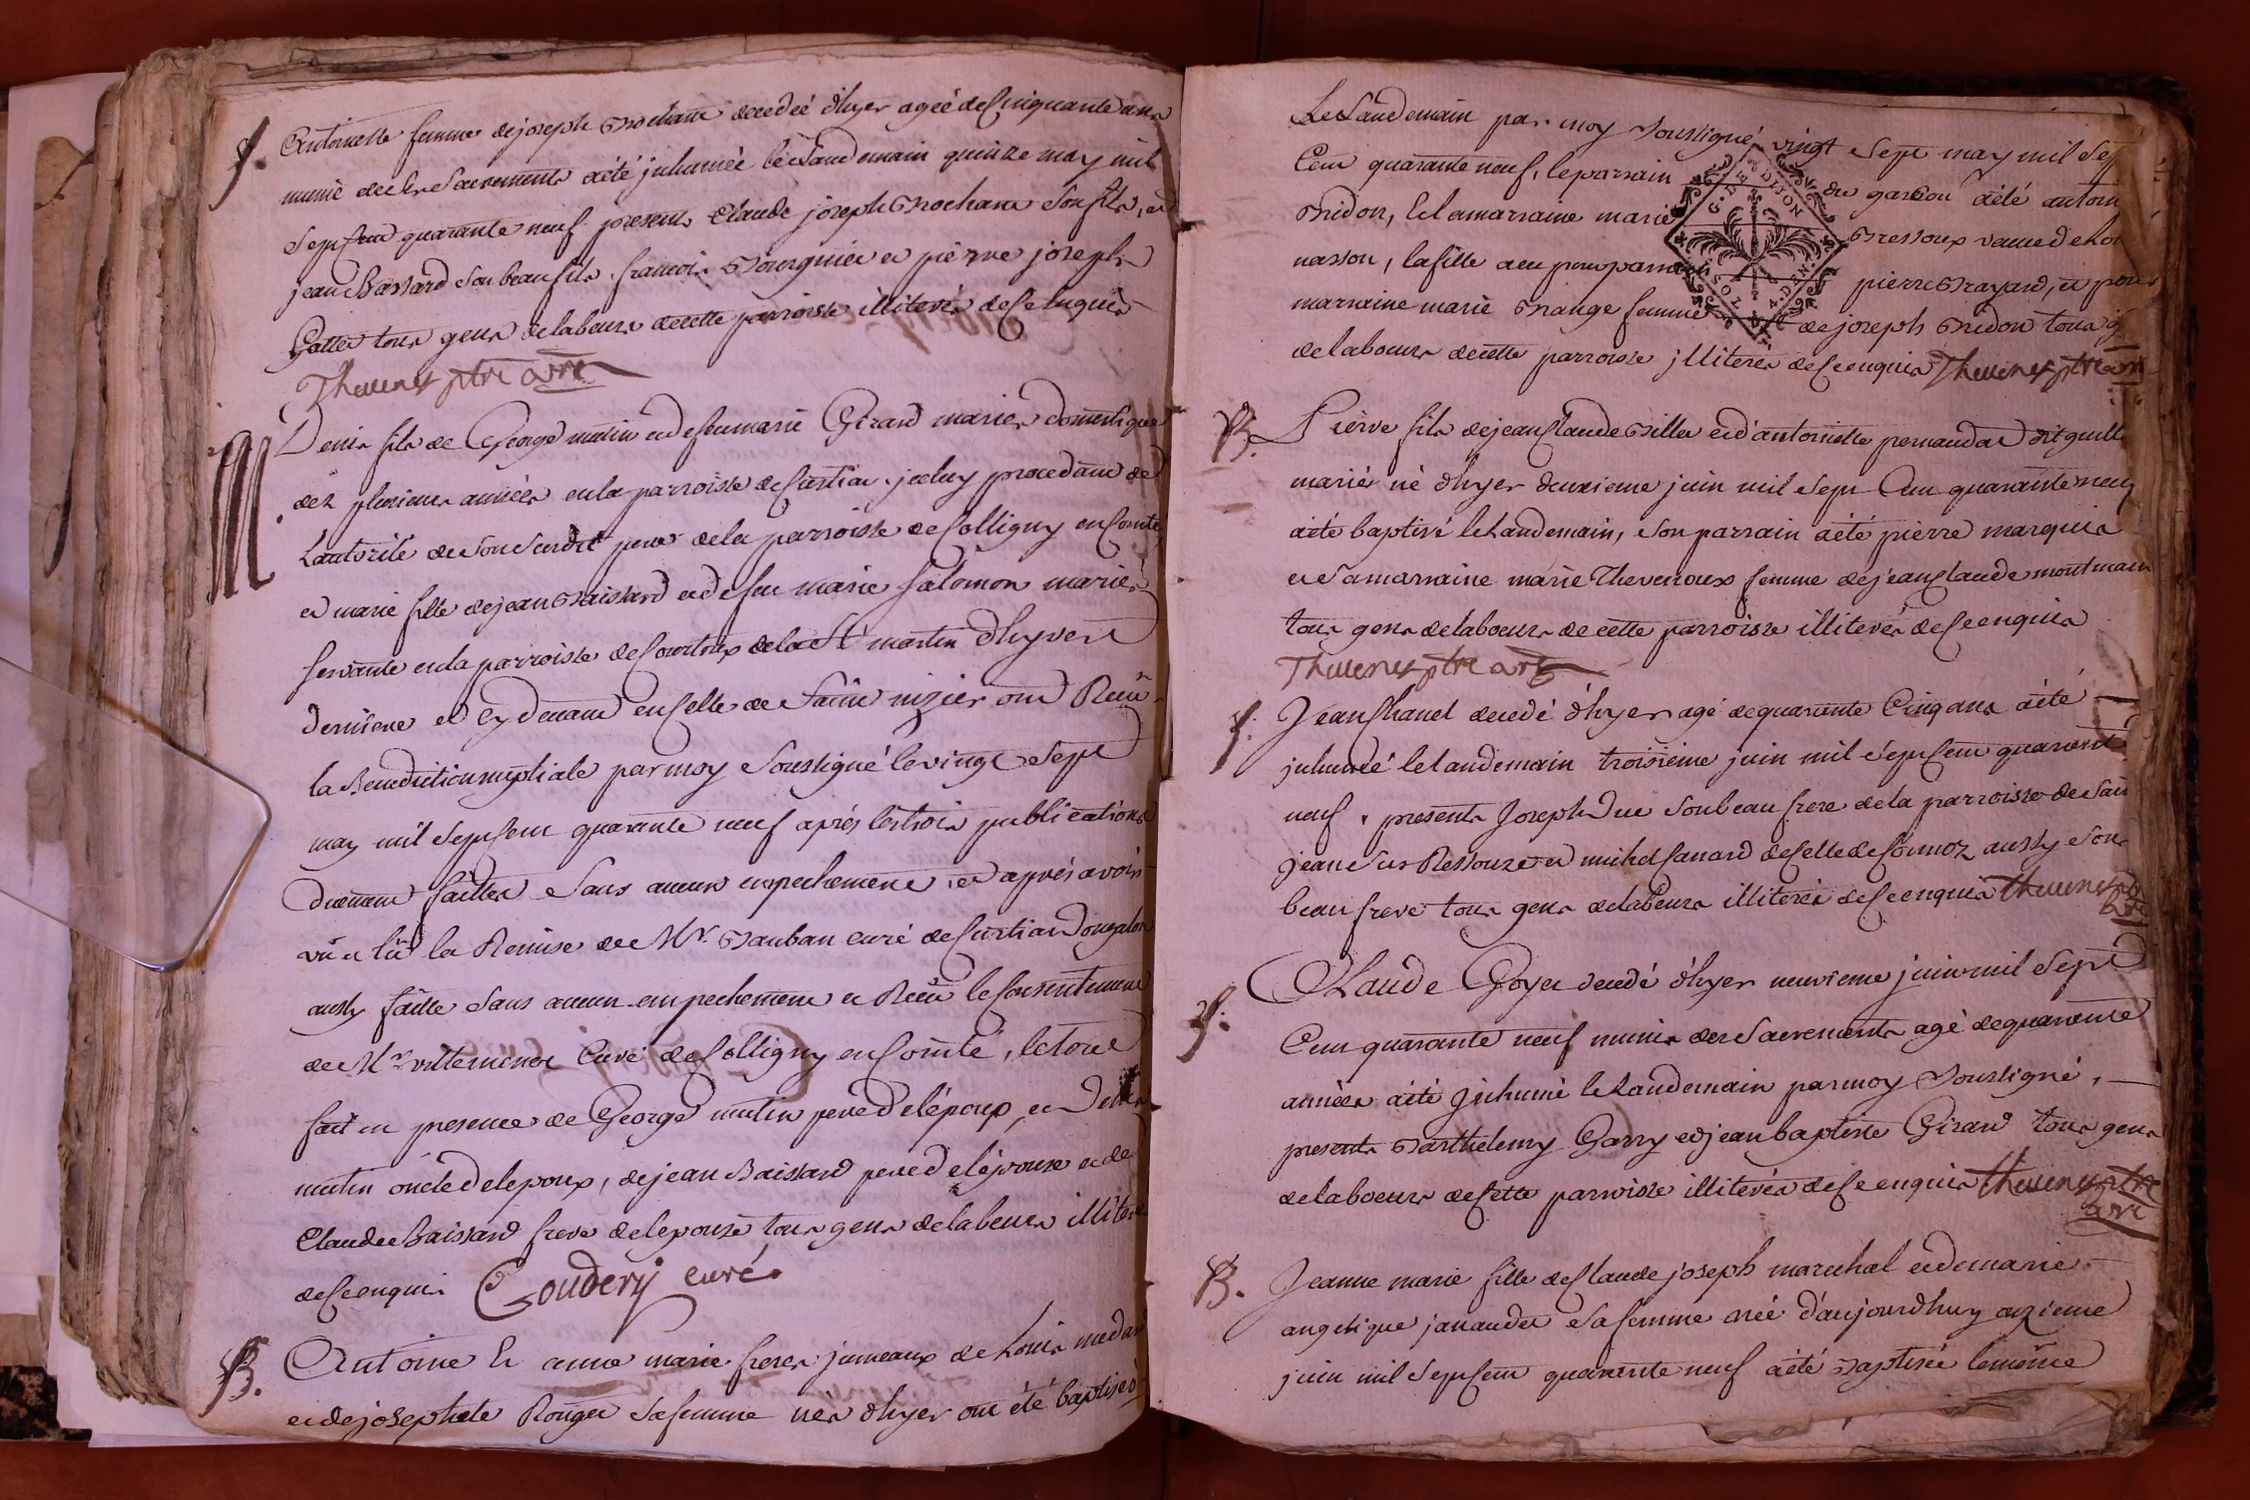 S. Antoinette femme de joseph Brochant decedée d'hyer agée de Cinquante ans
munie de ses Sacrements a été inhumée le Landemain quinze may mil
Sept Cent quarante neuf presents Claude joseph Brochant Son fils, et
jean Baissard Son beau fils, francois et pierre joseph
tous gens de labeurs de cette parroisse illiterés de ce enquis
Thevenet ptre
M. Denis fils de George mutin et de feu marie Girard mariés domestique
dez plusieurs années en la parroisse de Curtiat, jceluy procedant de
Lautorité de Son Susdit pere de la parroisse de Colligny en Comté
et marie fille de jean Baissard et de feu marie Salomon mariés
servante en la parroisse de Courtoux de la St martin d'hyvert
derniere et Cy devant en Celle de Saint nizier ont Recu
la Benediction nuptiale par moy Soussigné le vingt Sept
may mil Sept Cent quarante neuf aprés les trois publications
duement faittes Sans aucun empechement, et aprés avoir
vû et lû la Remise de Mr. Bauban curé de Curtiat Dongalon
aussy faitte Sans aucun empechement et Recu le Consentement
de Mr. Curé de Colligny en Comté, le tout
fait en presence de George mutin pere de lépoux, et Denis
mutin oncle de lepoux, de jean Baissard pere de lépouse et de
Claude Baissard frere de lepouse tous gens de labeurs illiterés
de Ce enquis Coudery curé
B. Antoine Et anne marie freres jumeaux de Louis
et de josephete Rouger Sa femme nés d'hyer ont été baptisés
Le Landemain par moy Soussigné vingt Sept may mil Sept
Cent quarante neuf, le parrain du garcon a été antoine
Bridon, Et la marraine marie Bressoux veuve de
nasson, la fille a eu pour parrain pierre Brayard, et pour
marraine marie Brange femme de joseph Bridon tous
de labeurs de cette parroisse illiterés de Ce enquis Thevenet ptre
G. DE DIJON
SOLS 4. DEN.
B. Pierre fils de jean Claude Billet et d'antoinette pernaudat dit
mariés né d'hyer deuxieme juin mil Sept Cent quarante neuf
a été baptisé le Landemain, Son parrain a été pierre marquis
et Sa marraine marie Thevenoux femme de jean Claude montmain
tous gens de labeurs de cette parroisse illiterés de Ce enquis
Thevenet ptre
S. Jean Chanel decedé d'hyer agé de quarante Cinq ans a été
inhumé le landemain troisieme juin mil Sept Cent quarante
neuf, presents Joseph Duc Son beau frere de la parroisse de Saint
jean Sur Ressouze et michel Canard de Celle de Cormoz aussy Son
beau frere tous gens de labeurs illiterés de Ce enquis Thevenet ptre
S. Claude Goyer decedé d'hyer neuvieme juin mil Sept
Cent quarante neuf munis des Sacrements agé de quarante
années a été Inhumé le Landemain par moy Soussigné,
presents Barthelemy Garry et jean baptiste Girard tous gens
de labeurs de Cette parroisse illiterés de Ce enquis Thevenet ptre
B. Jeanne marie fille de Claude joseph marechal et de marie
angelique janaudet Sa femme née d'aujourdhuy onzieme
juin mil Sept Cent quarante neuf a été Baptisée le même